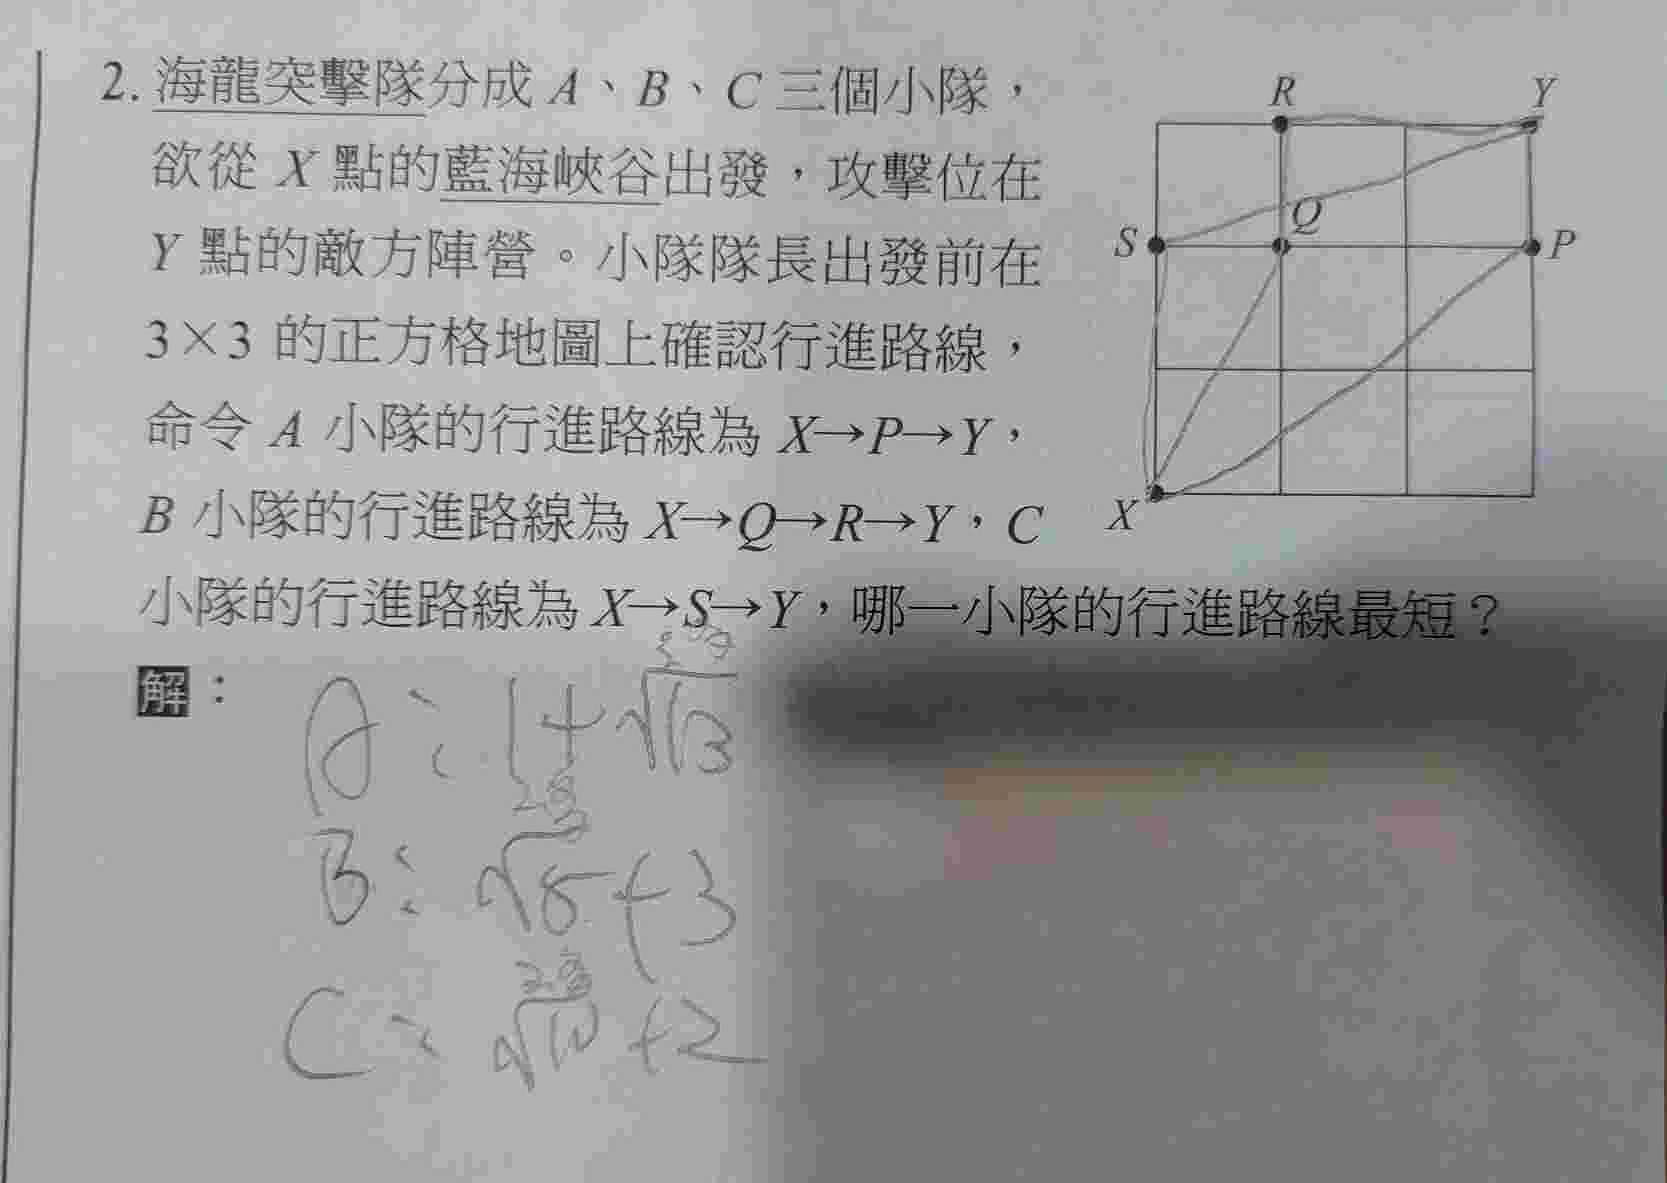 2. 海龍突擊隊分成 A、B、C 三個小隊，
欲從 X 點的藍海峽谷出發，攻擊位在
Y 點的敵方陣營。小隊隊長出發前在
3×3 的正方格地圖上確認行進路線，
命令 A 小隊的行進路線為 X→P→Y，
B 小隊的行進路線為 X→Q→R→Y，C
小隊的行進路線為 X→S→Y，哪一小隊的行進路線最短？
R Y
Q
S P
X
解：
A：1+√13
B：√5+3
C：√10+2